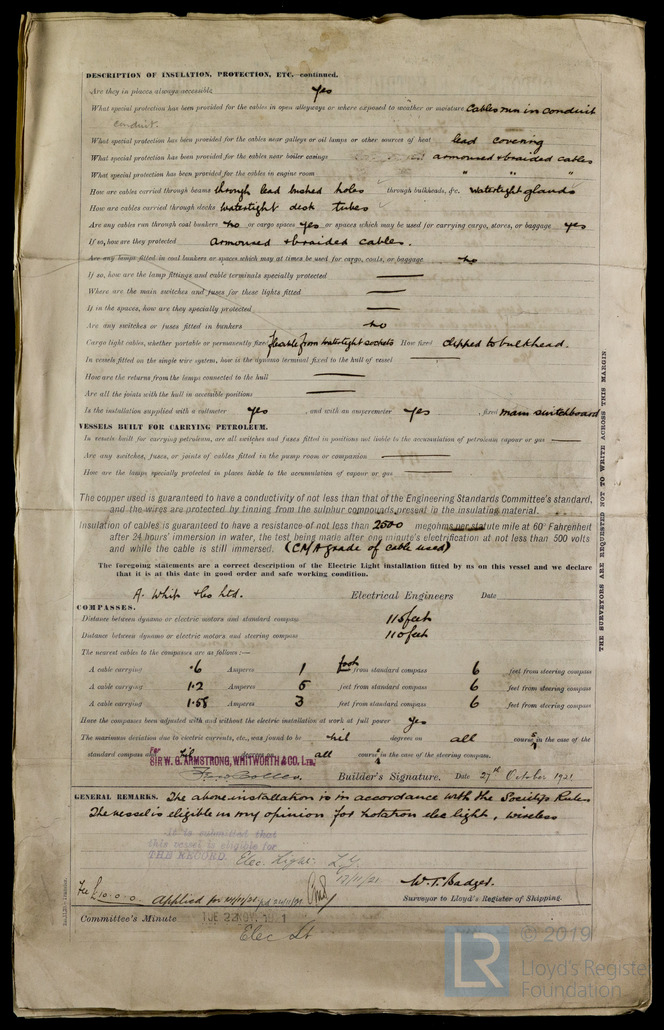 DESCRIPTION OF INSULATION, PROTECTION, ETC. continued.
Are they in places always accessible yes
What special protection has been provided for the cables in open alleyways or where exposed to weather or moisture Cables run in conduit
conduit.
What special protection has been provided for the cables near galleys or oil lamps or other sources of heat lead covering
What special protection has been provided for the cables near boiler casings armoured & braided cables
What special protection has been provided for the cables in engine room " " "
How are cables carried through beams through lead bushed holes through bulkheads, &c. watertight glands
How are cables carried through decks watertight deck tubes
Are any cables run through coal bunkers no or cargo spaces yes or spaces which may be used for carrying cargo, stores, or baggage yes
If so, how are they protected armoured & braided cables.
Are any lamps fitted in coal bunkers or spaces which may at times be used for cargo, coals, or baggage no
If so, how are the lamp fittings and cable terminals specially protected
Where are the main switches and fuses for these lights fitted
If in the spaces, how are they specially protected
Are any switches or fuses fitted in bunkers no
Cargo light cables, whether portable or permanently fixed flexible from watertight sockets How fixed clipped to bulkhead.
In vessels fitted on the single wire system, how is the dynamo terminal fixed to the hull of vessel
How are the returns from the lamps connected to the hull
Are all the joints with the hull in accessible positions
Is the installation supplied with a voltmeter yes , and with an amperemeter yes , fixed main switchboard
VESSELS BUILT FOR CARRYING PETROLEUM.
In vessels built for carrying petroleum, are all switches and fuses fitted in positions not liable to the accumulation of petroleum vapour or gas
Are any switches, fuses, or joints of cables fitted in the pump room or companion
How are the lamps specially protected in places liable to the accumulation of vapour or gas
The copper used is guaranteed to have a conductivity of not less than that of the Engineering Standards Committee's standard,
and the wires are protected by tinning from the sulphur compounds present in the insulating material.
Insulation of cables is guaranteed to have a resistance of not less than 2500 megohms per statute mile at 60° Fahrenheit
after 24 hours' immersion in water, the test being made after one minute's electrification at not less than 500 volts
and while the cable is still immersed. (CMA grade of cable used)
The foregoing statements are a correct description of the Electric Light installation fitted by us on this vessel and we declare
that it is at this date in good order and safe working condition.
A. White & Co Ltd. Electrical Engineers Date
COMPASSES.
Distance between dynamo or electric motors and standard compass 115 feet
Distance between dynamo or electric motors and steering compass 110 feet
The nearest cables to the compasses are as follows:—
A cable carrying .6 Amperes 1 foot from standard compass 6 feet from steering compass
A cable carrying 1.2 Amperes 5 feet from standard compass 6 feet from steering compass
A cable carrying 1.58 Amperes 3 feet from standard compass 6 feet from steering compass
Have the compasses been adjusted with and without the electric installation at work at full power yes
The maximum deviation due to electric currents, etc., was found to be nil degrees on all courses in the case of the
standard compass and nil degrees on all courses in the case of the steering compass.
For
SIR W. G. ARMSTRONG, WHITWORTH & CO. LTD.
Builder's Signature. Date 27th October 1921
GENERAL REMARKS. The above installation is in accordance with the Society's Rules
The vessel is eligible in my opinion for notation elec light, wireless
It is submitted that
this vessel is eligible for
THE RECORD. Elec. Light.
17/11/21
W. T. Badger.
Fee £10-0-0 Applied for
Surveyor to Lloyd's Register of Shipping.
Committee's Minute TUE 22 NOV 1921
Elec Lt
THE SURVEYORS ARE REQUESTED NOT TO WRITE ACROSS THIS MARGIN
LR © 2019
Lloyd's Register
Foundation